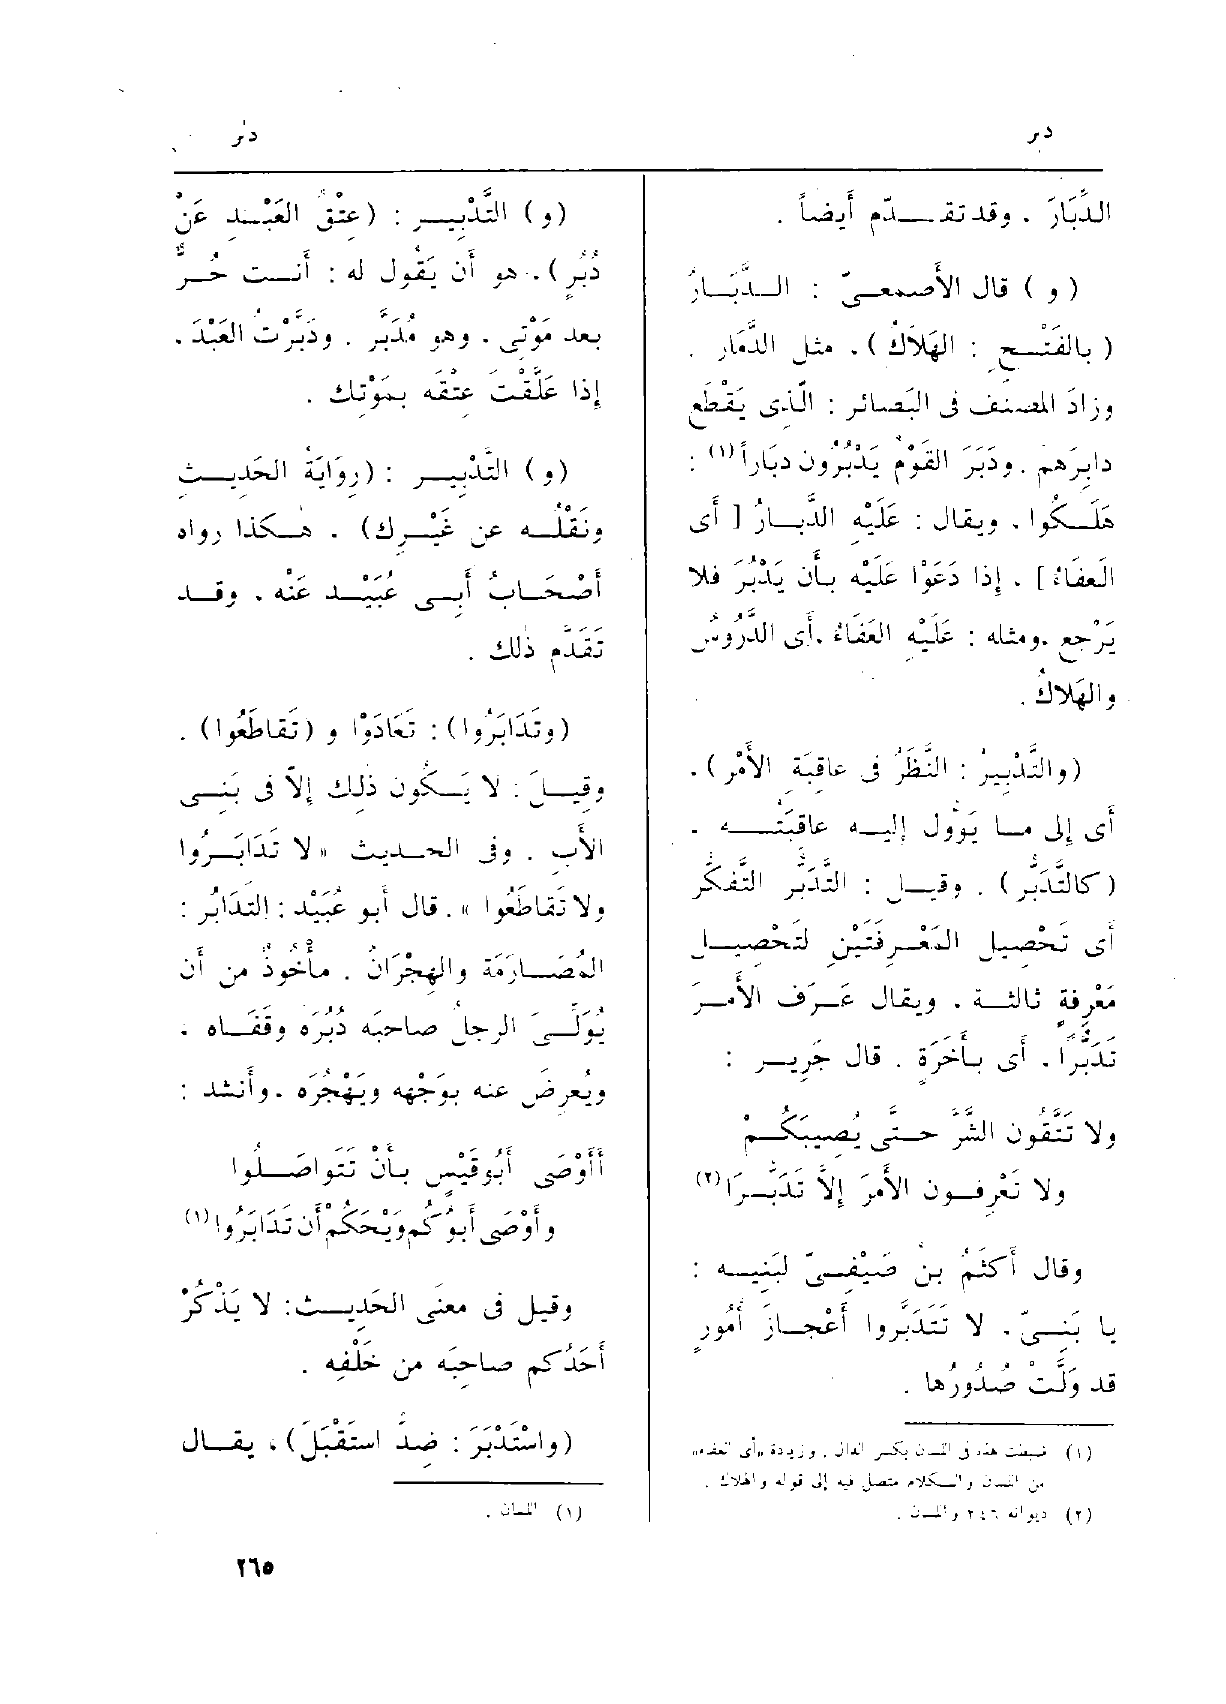 دبر
دبر
الدَّبَارَ . وقد تقـدّم أيضاً .
( و ) قال الأَصمعىّ : الـدَّبَـارُ
( بالفَتْـحِ : الهَلَاكُ ) ، مثل الدَّمَار .
وزادَ المصنف فى البَصائر : الّذى يَقْطَع
دابِرَهم . ودَبَرَ القَوْمُ يَدْبُرُون دبَاراً(١) :
هَلَـكُوا . ويقال : عَلَيْهِ الدَّبـارُ [ أَى
العَفَاءُ ] ، إِذا دَعَوْا عَلَيْه بأَن يَدْبُرَ فلا
يَرْجع . ومثله : عَلَيْهِ العَفَاءُ ، أَى الدُّرُوسُ
والهَلاكُ .
(والتَّدْبِيرُ : النَّظَرُ فى عاقِبَةِ الأَمْر) ،
أَى إِلى مـا يَؤُول إِليـه عاقبَتُـه ،
(كالتَّدَبُّر ) . وقيـل : التَّدَبُّر التَّفَكُّر
أَى تَحْصِيل المَعْـرِفَتَيْنِ لتَحْصِيـل
مَعْرِفةٍ ثالثـة . ويقال عَـرَف الأَمـرَ
تَدَبُّرًا ، أَى بأَخَرَةٍ . قال جَرِيـر :
ولا تَتَّقُون الشَّرَّ حـتَّى يُصِيبَكُـمْ
ولا تَعْرِفـون الأَمرَ إِلاَّ تَدَبُّـرَا(٢)
وقال أَكثَمُ بنُ صَيْفـىّ لبَنِيـه :
يا بَنِـىّ ، لا تَتَدَبَّروا أَعْجـازَ أُمُورٍ
قد وَلَّتْ صُدُورُها .
(١) ضبطت هذه فى اللسان بكسر الدال . وزيادة «أى العفاء»
من اللسان والـكلام متصل فيه إلى قوله والهلاك .
(٢) ديوانه ٢٤٦ واللسان .
(و) التَّدْبِيـر : (عِتْقُ العَبْـد عَنْ
دُبُرٍ) ، هو أَن يَقُول له : أَنـت حُـرٌّ
بعد مَوْتِى ، وهو مُدَبَّر . ودَبَّرْتُ العَبْدَ ،
إِذا عَلَّقْتَ عِتْقَه بمَوْتك .
(و) التَّدْبِيـر : (رِوَايَةُ الحَدِيـثِ
ونَقْلُـه عن غَيْـرِك) ، هـكذا رواه
أَصْحَـابُ أَبِـى عُبَيْـد عَنْه ، وقـد
تَقَدَّم ذلك .
(وتَدَابَرُوا) : تَعَادَوْا و (تَقاطَعُوا) .
وقيـلَ : لا يَـكُون ذلِك إِلاّ فى بَنِـى
الأَب . وفى الحـديث « لا تَدَابَـرُوا
ولا تَقاطَعُوا » . قال أَبو عُبَيْد : التدَابُر :
المُصَـارَمَة والهِجْرَانُ ، مأْخُوذٌ من أَن
يُوَلِّـىَ الرجلُ صاحبَه دُبُرَه وقَفَـاه ،
ويُعرِضَ عنه بوَجْهه ويَهْجُرَه . وأَنشد :
أَأَوْصَى أَبُو قَيْسٍ بـأَنْ تَتَواصَـلُوا
وأَوْصَى أَبوكُم وَيْحَكُمْ أَن تَدَابَرُوا(١)
وقيل فى معنَى الحَدِيـث: لا يَذْكُرْ
أَحَدُكم صاحِبَه من خَلْفِه .
(واسْتَدْبَرَ : ضِدُّ استَقْبَلَ) ، يقـال
(١) اللسان .
٢٦٥